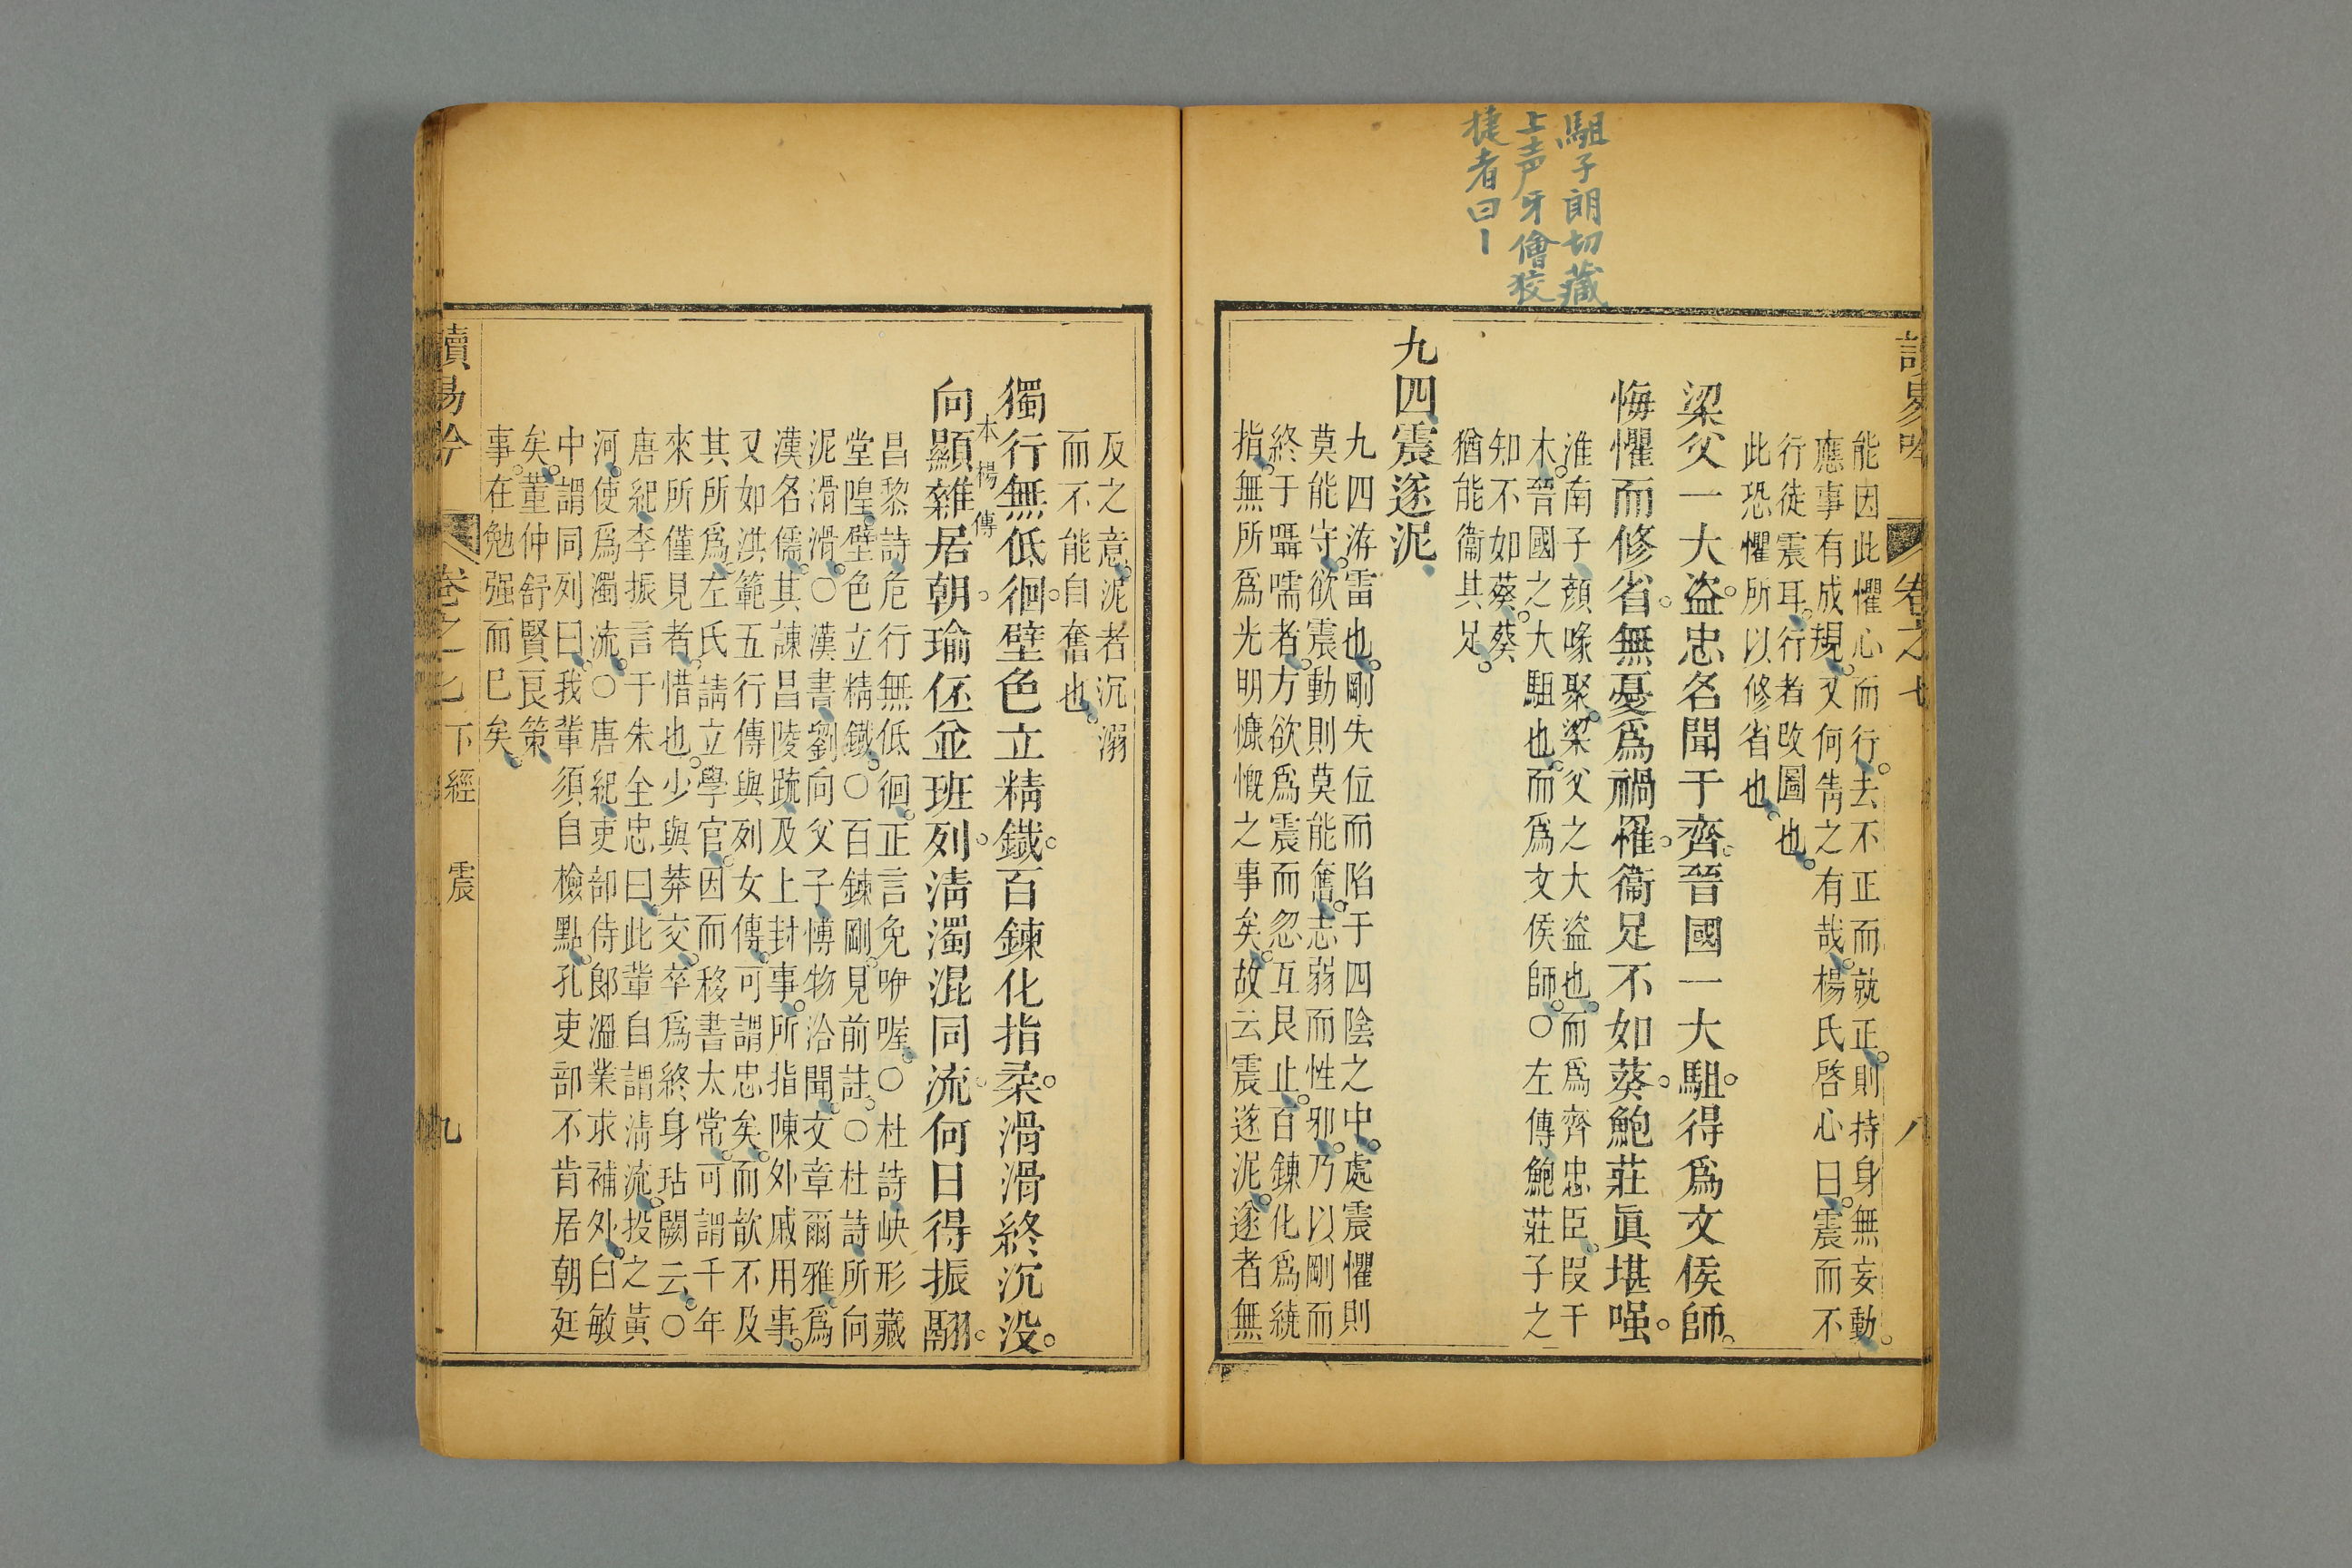 駔子朗切藏
上声牙儈狡
捷者曰丨
讀易吟 卷之七 八
能因此懼心而行。去不正而就正。則持身無妄動。
應事有成規。又何眚之有哉。楊氏啓心曰。震而不
行徒震耳。行者改圖也。
此恐懼所以修省也。
梁父一大盜。忠名聞于齊。晉國一大駔。得爲文侯師。
悔懼而修省。無憂爲禍罹。衞足不如葵。鮑莊眞堪嗤。
淮南子。顏喙聚。梁父之大盜也。而爲齊忠臣。段干
木。晉國之大駔也。而爲文侯師。○左傳鮑莊子之
知不如葵。葵
猶能衞其足。
九四震遂泥
九四洊雷也。剛失位而陷于四陰之中。處震懼則
莫能守。欲震動則莫能奮。志弱而性邪。乃以剛而
終于囁嚅者。方欲爲震而忽互艮止。百鍊化爲繞
指。無所爲光明慷慨之事矣。故云震遂泥。遂者無
反之意。泥者沉溺
而不能自奮也。
獨行無低徊。壁色立精鐵。百鍊化指柔。滑滑終沉没。
本 楊 傳
向顯雜居朝。瑜伾竝班列。淸濁混同流。何日得振翮。
昌黎詩。危行無低徊。正言免咿喔。○杜詩。峽形藏
堂隍。壁色立精鐵。○百鍊剛。見前註。○杜詩。所向
泥滑滑。○漢書。劉向父子博物洽聞。文章爾雅。爲
漢名儒。其諫昌陵疏。及上封事。所指陳外戚用事。
又如洪範五行傳與列女傳。可謂忠矣。而歆不及
其所爲。左氏請立學官。因而移書太常。可謂千年
來所僅見者。惜也。少與莽交。卒爲終身玷闕云。○
唐紀。李振言于朱全忠曰。此輩自謂淸流。投之黃
河。使爲濁流。○唐紀。吏部侍郞溫業求補外。白敏
中謂同列曰。我輩須自檢點。孔吏部不肯居朝廷
矣。董仲舒賢良策。
事。在勉强而已矣。
讀易吟 卷之七 下經 震 九